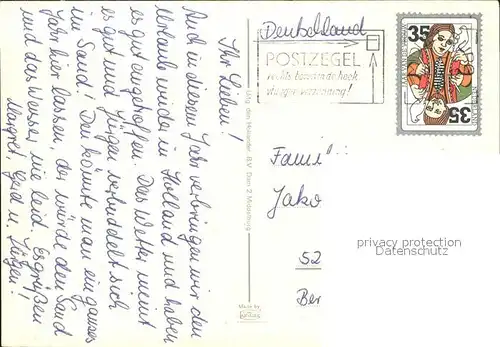 Ihr Lieben!
Auch in diesem Jahr verbringen wir den
Urlaub wieder in Holland und haben
es gut angetroffen. Das Wetter meint
es gut und Jürgen verbuddelt sich
im Sand! Den könnte man ein ganzes
Jahr hier lassen, der würde den Sand
und das Wasser nie leid. Es grüßen
Margret, Gerd u. Jürgen!
Deutschland
POSTZEGEL
rechts bovenaan de hoek
35
35
Uitg. den Hollander B.V. Dam 2 Middelburg
Made by
Famil
Jako
52
Ber
privacy protection
Datenschutz